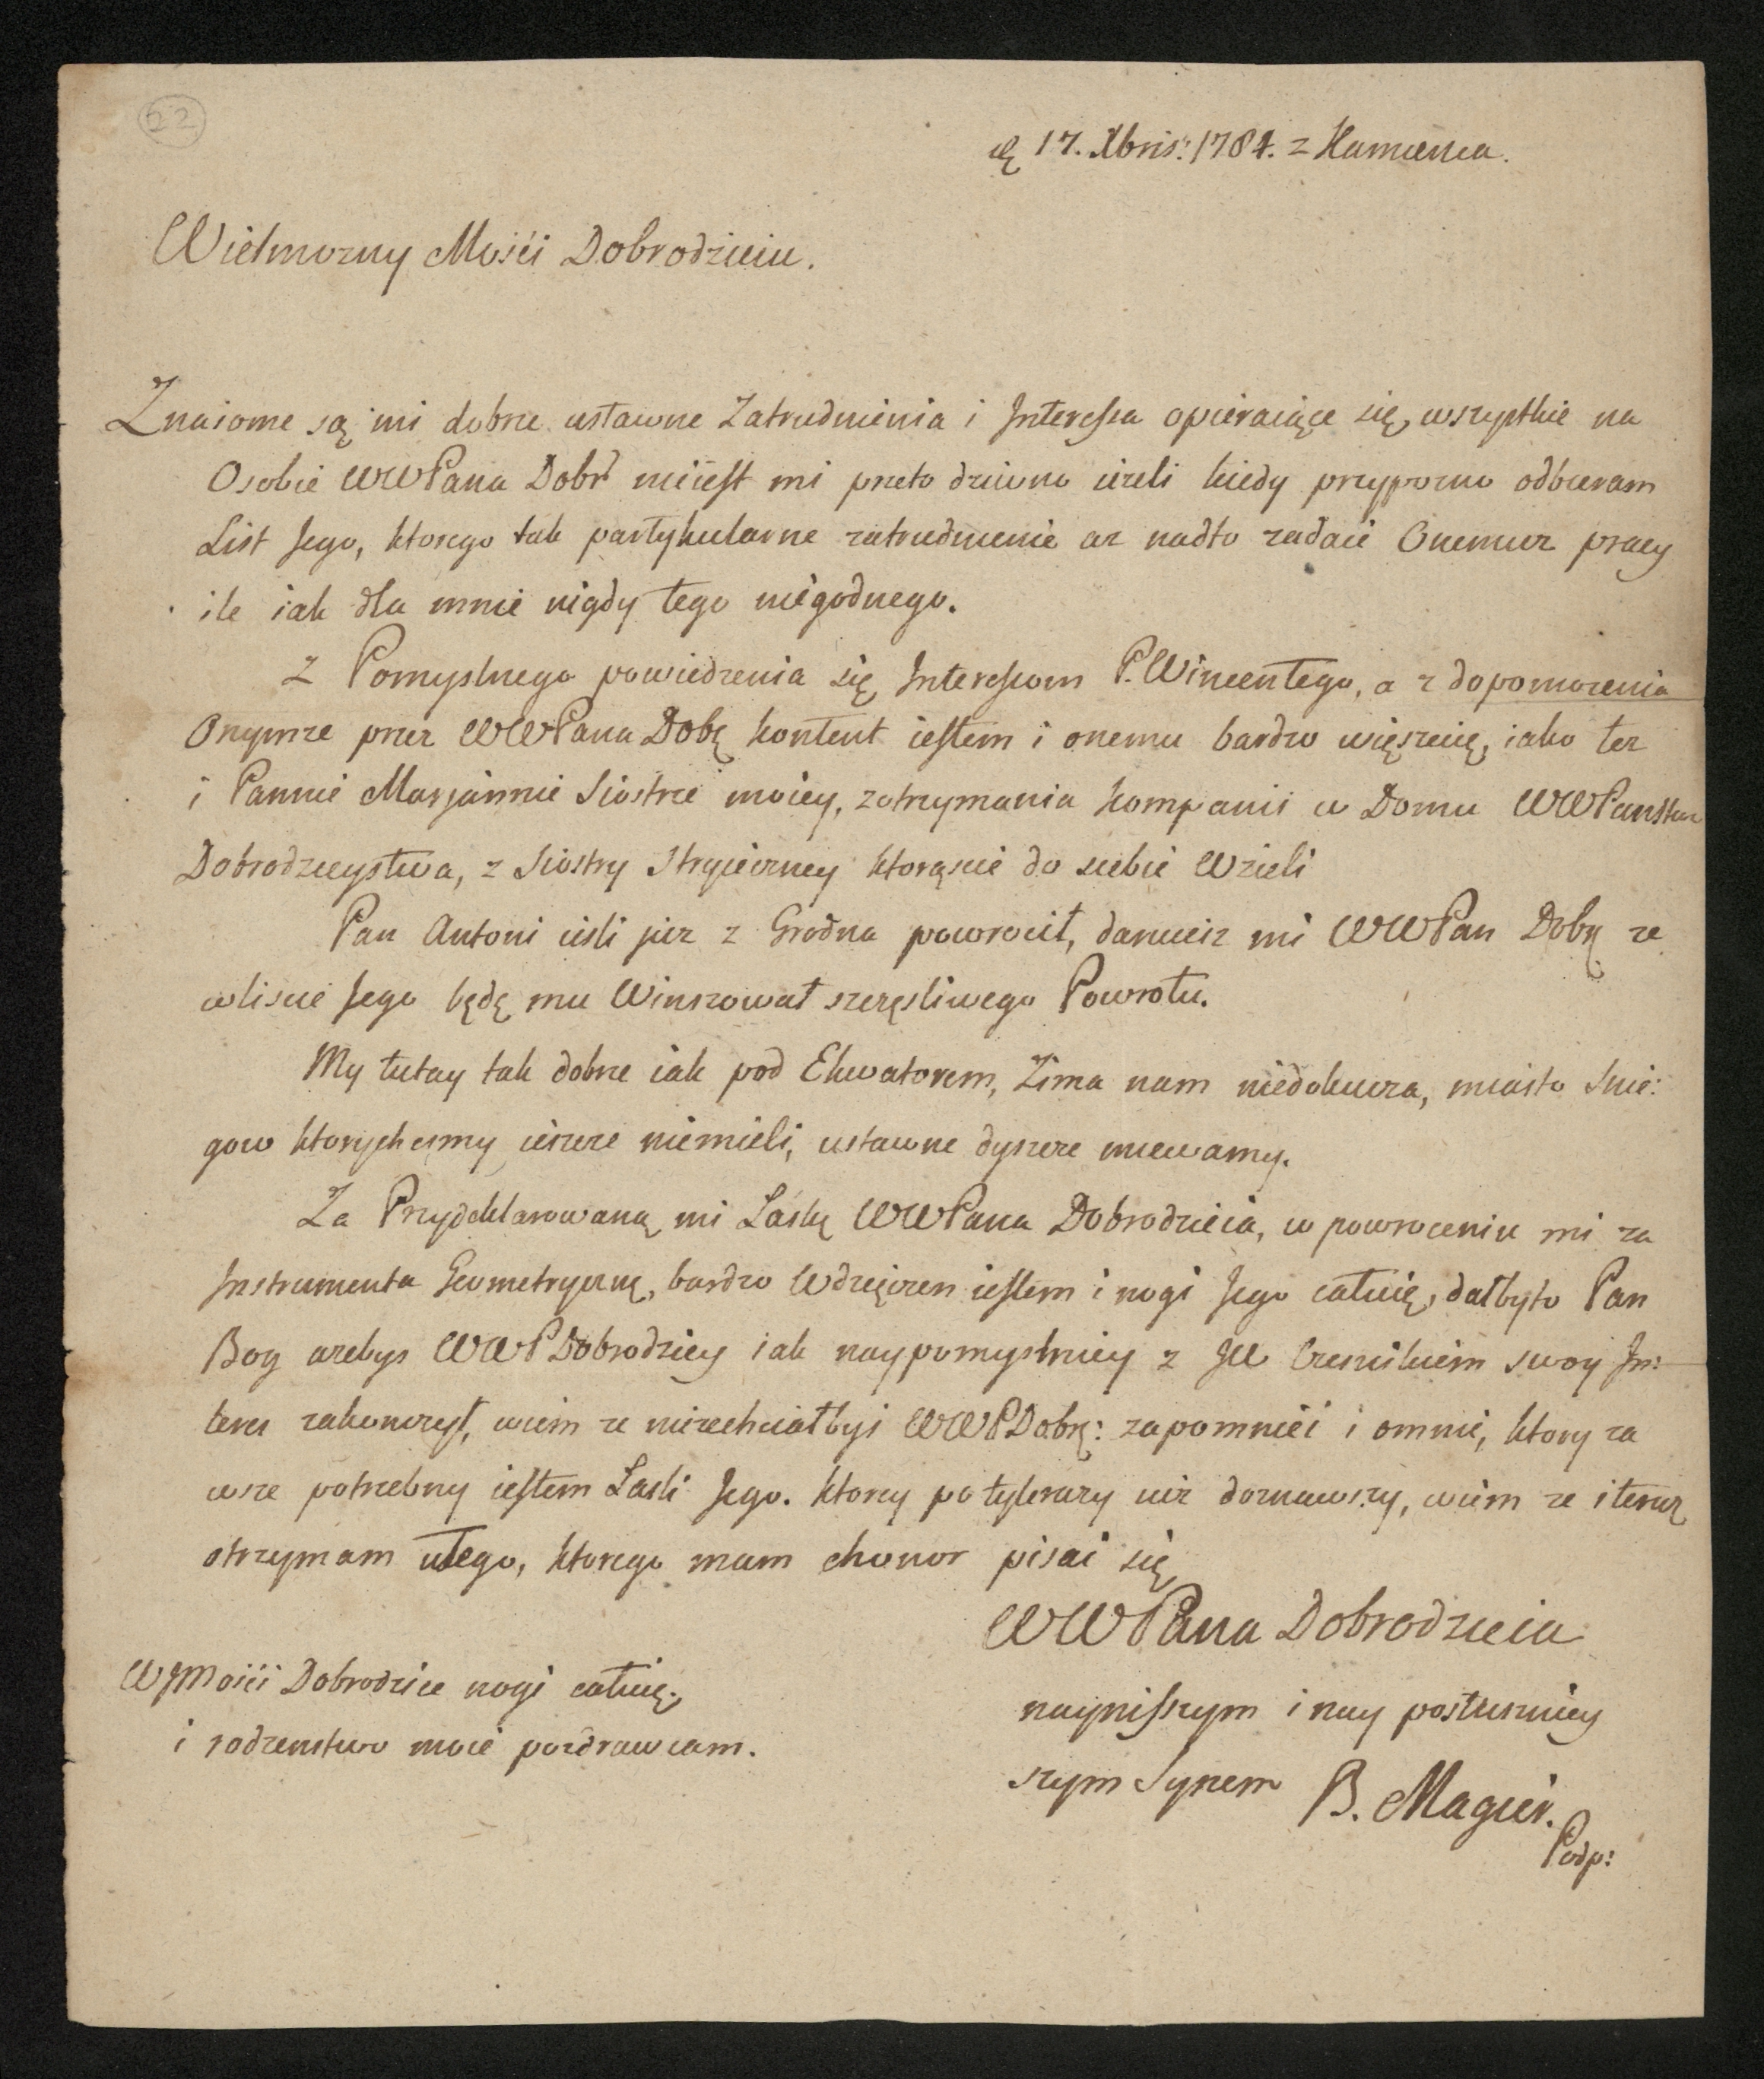 22
17. Xbris: 1784. z Kamienca.
Wielmozny Mosći Dobrodzieiu.
Znaiome są mi dobrze ustawne Zatrudnienia i Interessa opieraiące się wszystkie na
Osobie WWPana Dobr nieiest mi przeto dziwno ieżeli kiedy przypozno odbieram
List Jego, ktorego tak partykularne zatrudnienie az nadto zadaie Onemuz pracy
ile iak dla mnie nigdy tego niegodnego.
Z Pomyslnego powiedzenia się Interessom P. Wincentego, a z dopomozenia
Onymze przez WWPana Dobę kontent iestem i onemu bardzo więszcię, iako tez
i Pannie Marjannie Siostrze moiey, zotrzymania kompanii w Domu WWPanstwa
Dobrodzieystwa, z Siostry Stryieczney ktorąscie do siebie Wzieli
Pan Antoni iesli juz z Grodna powrocił, daruiesz mi WWPan Dobę ze
wliscie Jego będę mu Winszował szczęsliwego Powrotu.
My tutay tak dobrze iak pod Ekwatorem, Zima nam niedokucza, miasto Snie:
gow ktorychesmy ieszcze niemieli, ustawne dyszcze miewamy.
Za Przydeklarowaną mi Łaskę WWPana Dobrodzieia, w powroceniu mi za
Instrumenta Geometryczne, bardzo Wdzięczen iestem i nogi Jego całuię, dałbyto Pan
Bog azebys WWPDobrodziey iak naypomyslniey z JW swoy In:
teres zakonczył, wiem ze niezechciałbyś WWPDobę: zapomnieć i omnie, ktory za
wsze potrzebny iestem Łaski Jego. ktorey potylerazy iuz doznawszy, wiem ze i teraz
otrzymam utego, ktorego mam chonor pisać się
WWPana Dobrodzieia
nayniszszym i nay posłuszniey
szym Synem B. Magier.
Podp:
WJMosći Dobrodzice nogi całuię.
i rodzenstwo moie pozdrawiam.